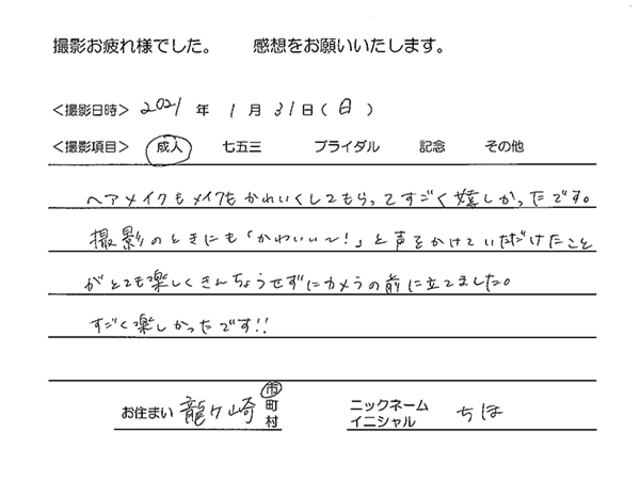 撮影お疲れ様でした。 感想をお願いいたします。
<撮影日時> 2021 年 1 月 31 日 ( 日 )
<撮影項目> 成人 七五三 ブライダル 記念 その他
ヘアメイクもメイクもかわいくしてもらってすごく嬉しかったです。
撮影のときにも「かわいい~!」と声をかけていただけたこと
がとても楽しくきんちょうせずにカメラの前に立てました。
すごく楽しかったです!!
お住まい 龍ヶ崎 市町村 ニックネーム イニシャル ちほ